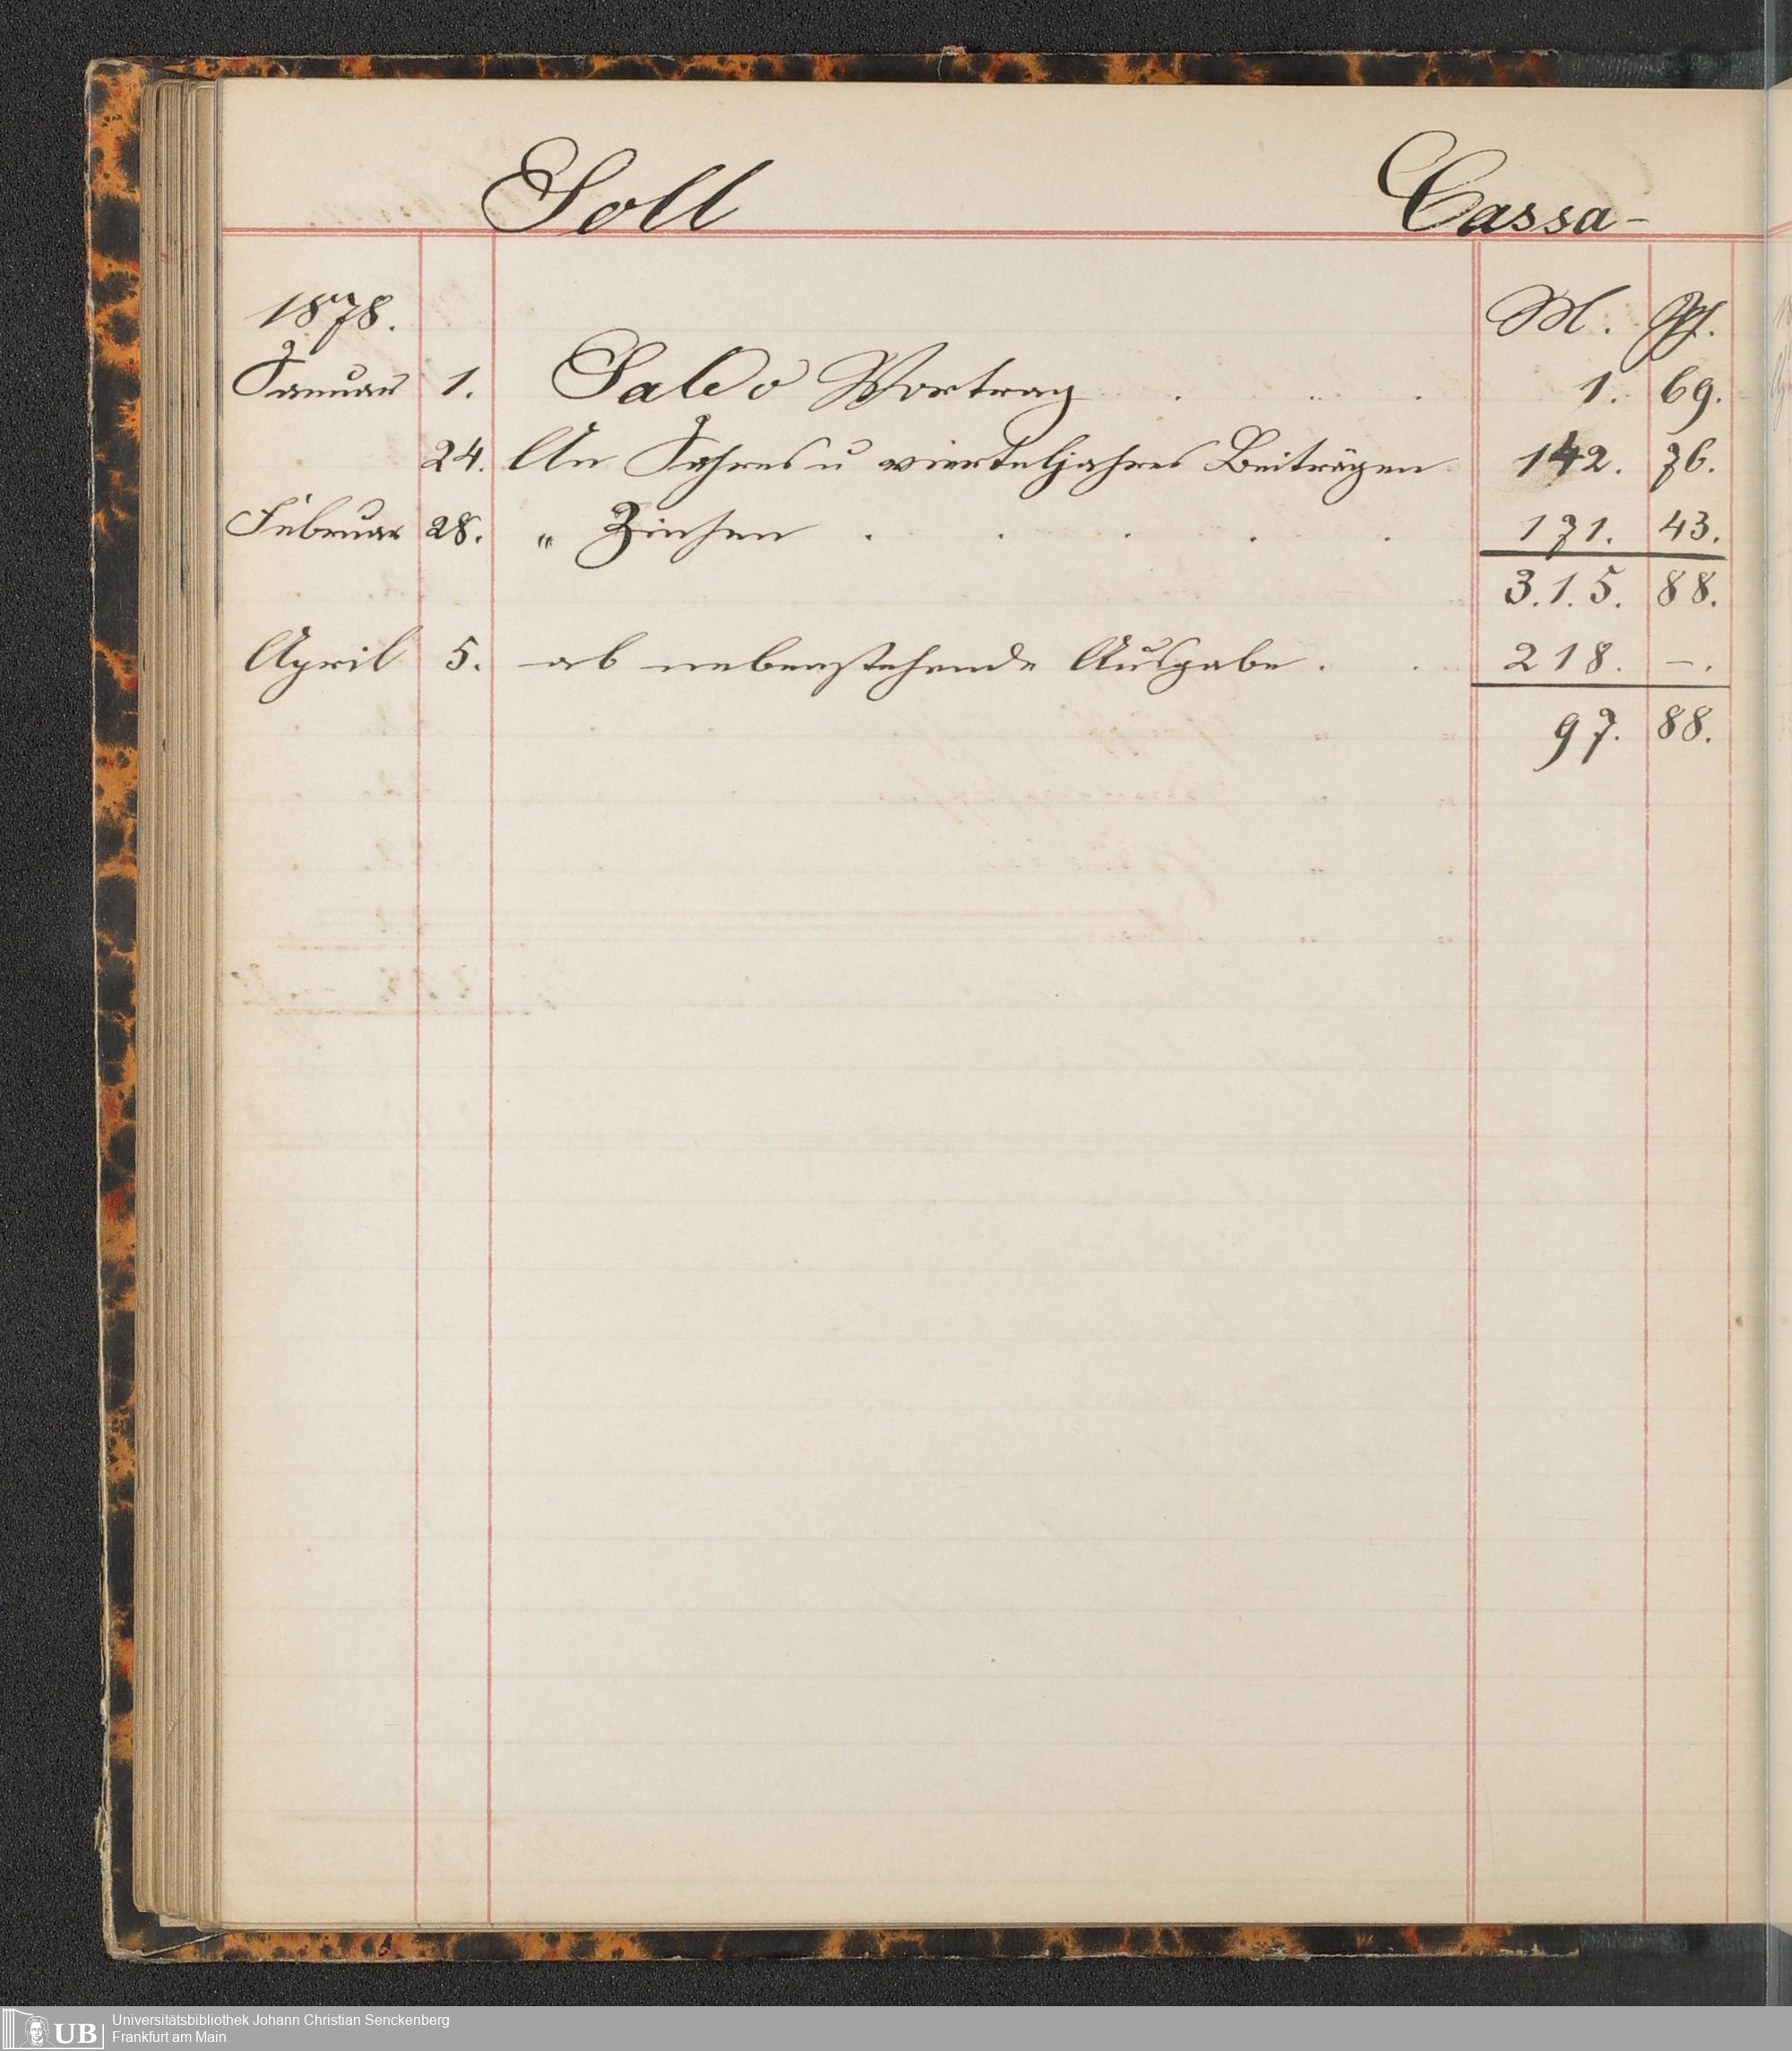 Soll Cassa-
1878. M. Pf.
Januar 1. Saldo Vortrag . . . . 1. 69.
24. An Jahres u vierteljahres Beiträgen 142. 76.
Februar 28. „ Zinsen . . . . . 171. 43.
3.1.5. 88.
April 5. ab nebenstehende Ausgabe . . 218. —.
97. 88.
UB Universitätsbibliothek Johann Christian Senckenberg
Frankfurt am Main